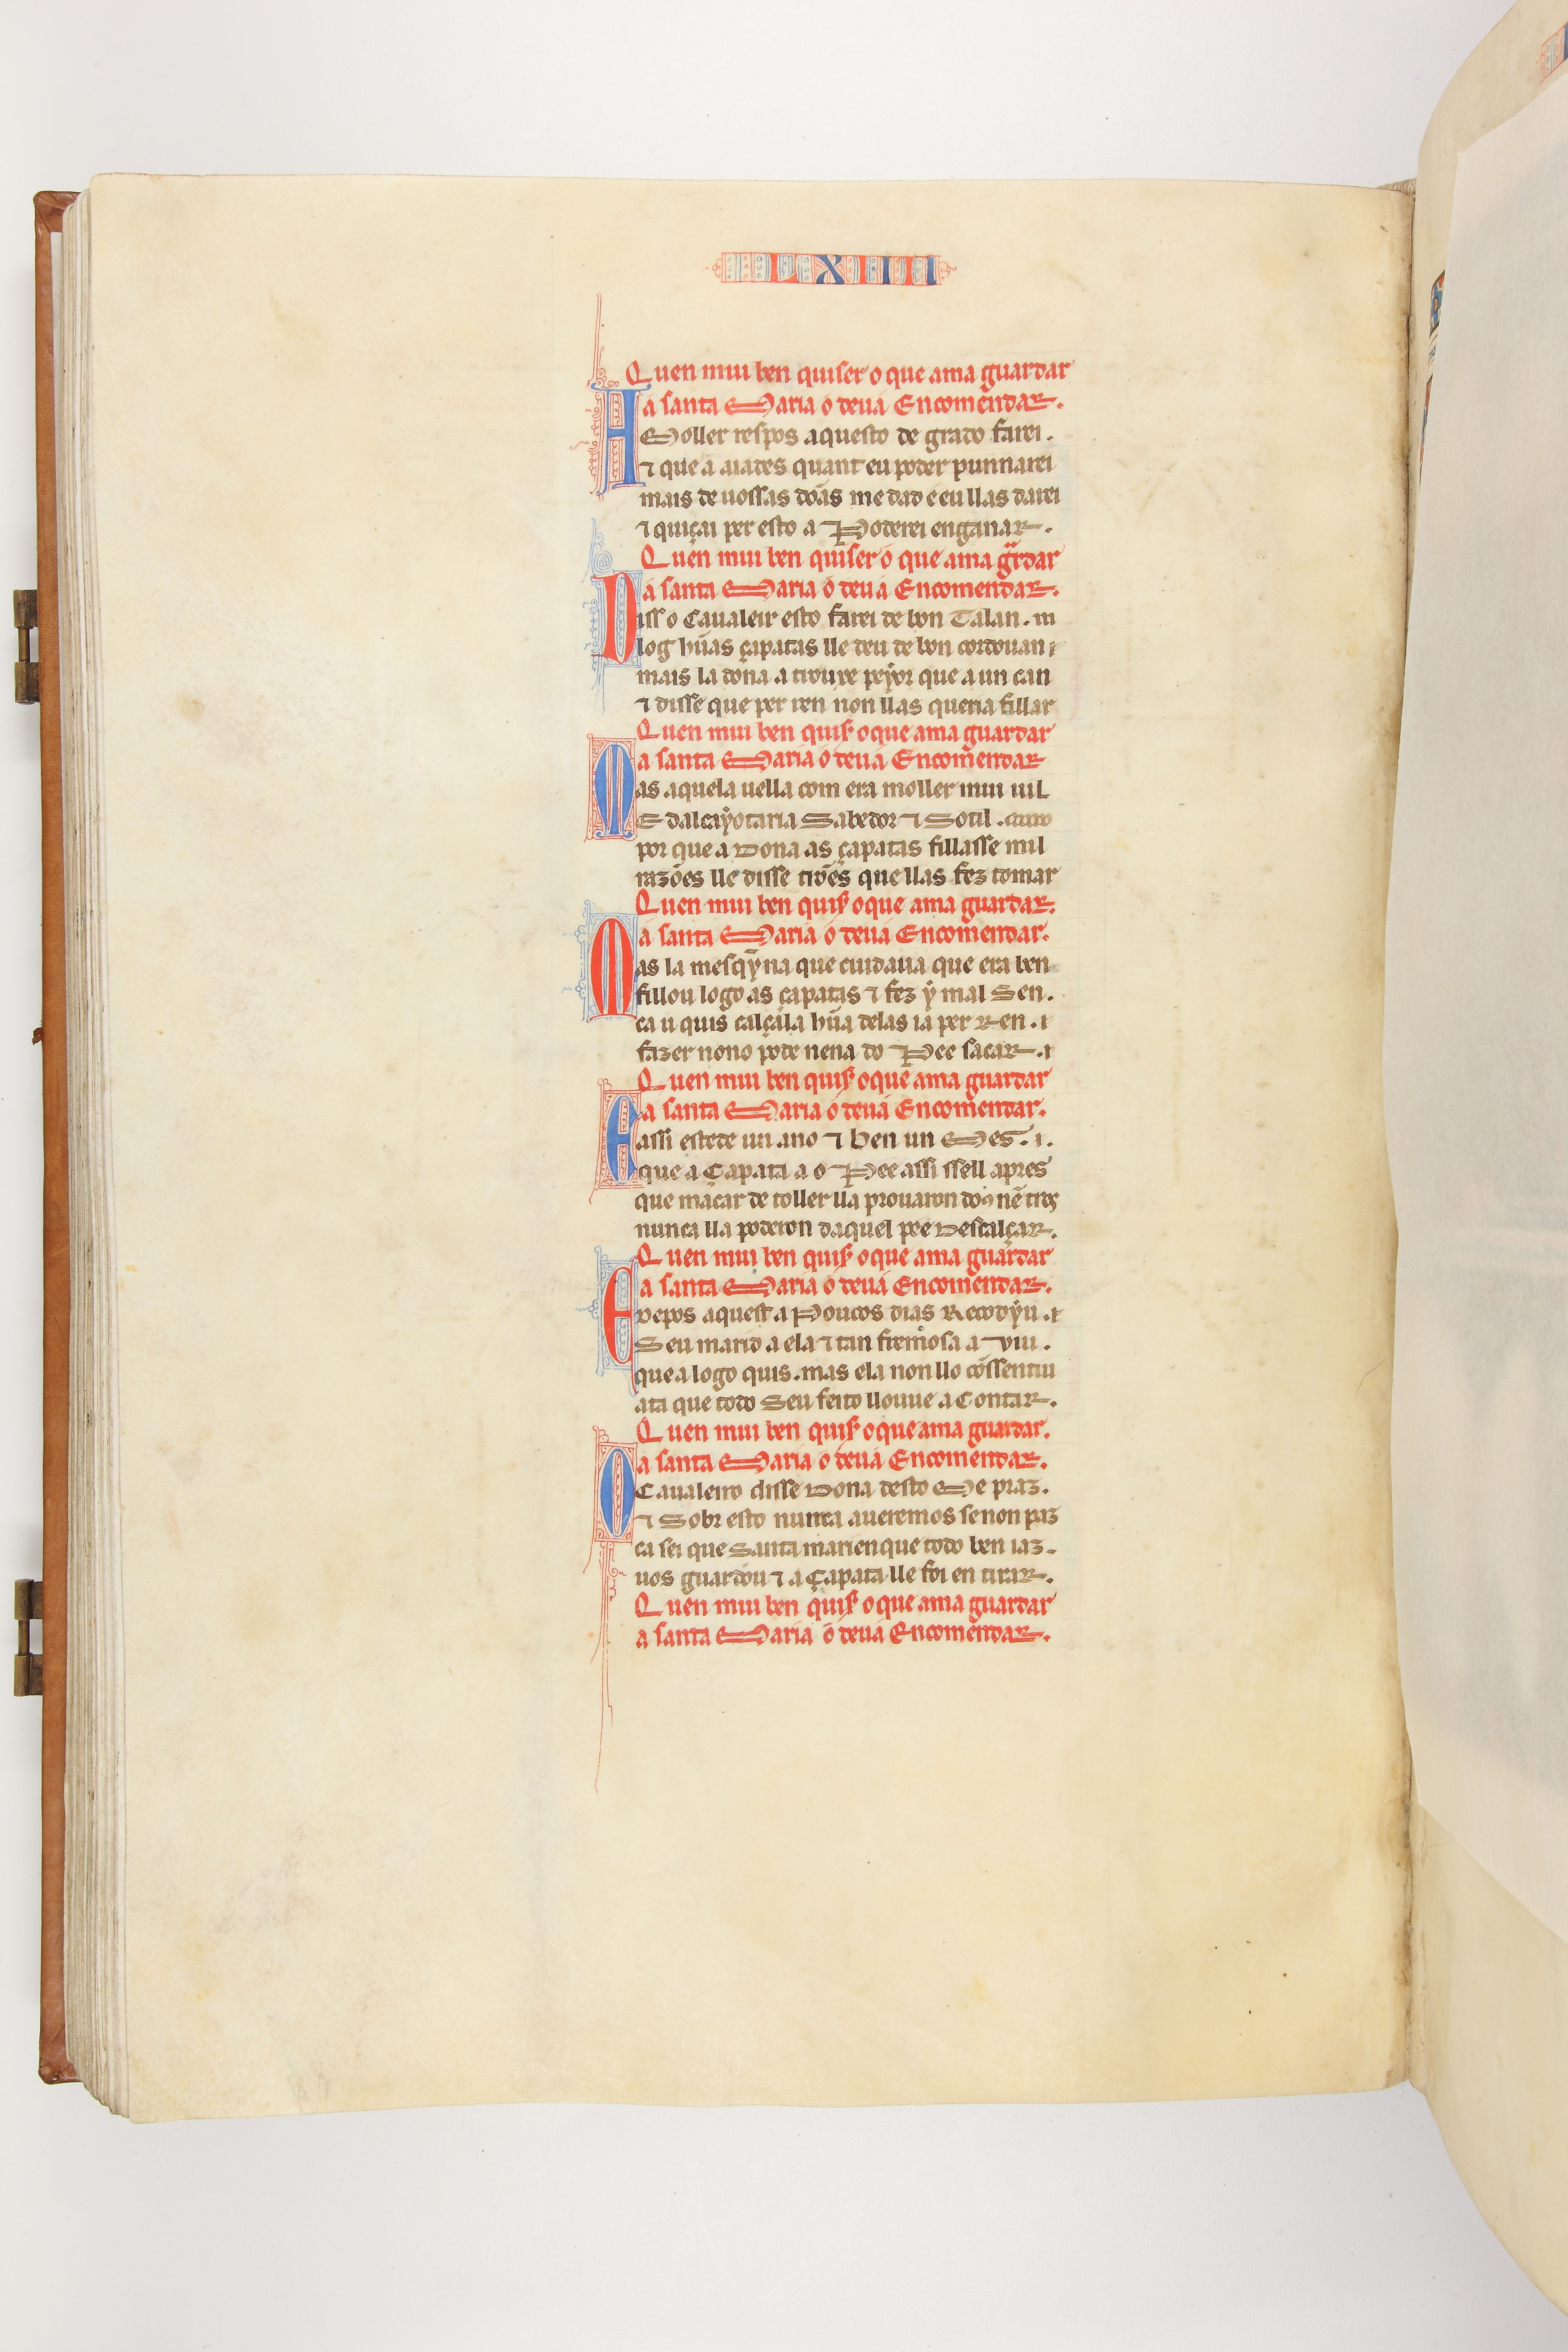 LXIIII
Quen mui ben quiser o que ama guardar
a santa Maria o deuá Encomendar.
A Moller respos aquesto de grado farei.
⁊ que a aiades quant eu poder punnarei
mais de uossas dõas me dad e eu llas darei
⁊ quiçai per esto a Poderei enganar.
Quen mui ben quiser o que ama gͣrdar
a santa Maria o deuá Encomendar.
Diss o Caualeir esto farei de bon Talan. m
log hũas çapatas lle deu de bon cordouan
mais la dona a trouxe peyor que a un can
⁊ disse que per ren non llas queria fillar
Quen mui ben quiẜ o que ama guardar
a santa Maria ó deuá Encomendar
Mas aquela uella com era moller mui uil
E dalcayotaria Sabedor ⁊ Sotil.
por que a Dona as çapatas fillasse mil
razões lle disse trões que llas fez tomar
Quen mui ben quiẜ o que ama guardar.
a santa Maria ó deuá Encomendar.
Mas la mesqỹna que cuidaua que era ben
fillou logo as çapatas ⁊ fez ẏ mal Sen.
ca u quis calçála hũa delas ia per Ren.
fazer nono pode nena do Pee sacar.
Quen mui ben quiẜ o que ama guardar
a santa Maria ó deuá Encomendar.
E assi estede un ano ⁊ ben un Mes.
que a Çapata a o Pee assi ssell apres
que macar de toller lla prouaron doꝯ nẽ tres
nunca lla poderon daquel pee Descalçar.
Quen mui ben quiẜ o que ama guardar
a santa Maria ó deuá Encomendar.
E depos aquest a Poucos dias Recodyu.
Seu marid a ela ⁊ tan fremosa a Viu.
que a logo quis. mas ela non llo cõssentiu
ata que todo Seu feito ll ouue a Contar.
Quen mui ben quiẜ o que ama guardar.
a santa Maria o deuá Encomendar.
O Caualeiro disse Dona desto Me praz.
⁊ Sobr esto nunca aueremos se non paz
ca sei que Santa marien que todo ben iaz.
uos guardou ⁊ a Çapata lle foi en tirar.
Quen mui ben quiẜ o que ama guardar
a santa Maria ó deuá Encomendar.